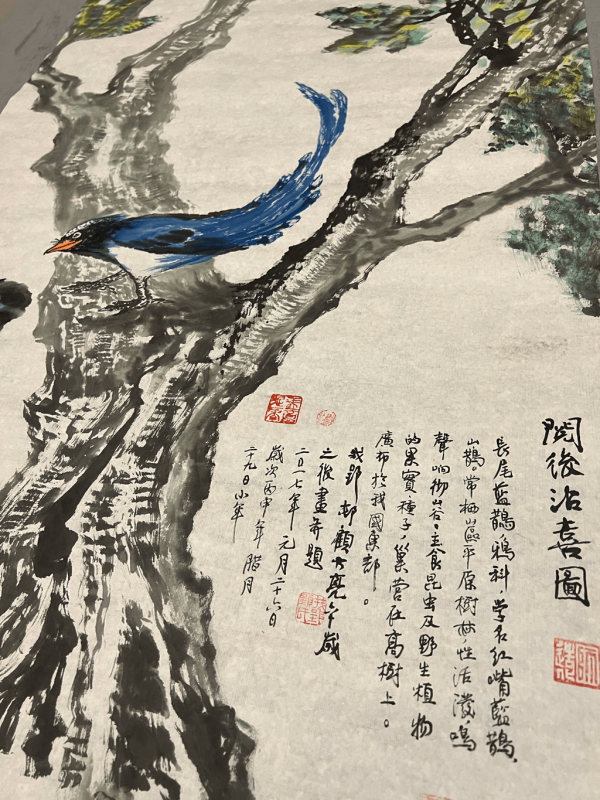 閱後沾喜圖
長尾藍鵲,鴉科,学名红嘴藍鵲,
山鵲常栖山區平原樹林,性活潑,鳴
聲响彻山谷。主食昆虫及野生植物
的果實種子,巢營在高樹上。
廣布於我國東部。
顧大亮
之後畫并題
二〇一七年元月二十六日
歲次丙申年腊月
二十九日小年